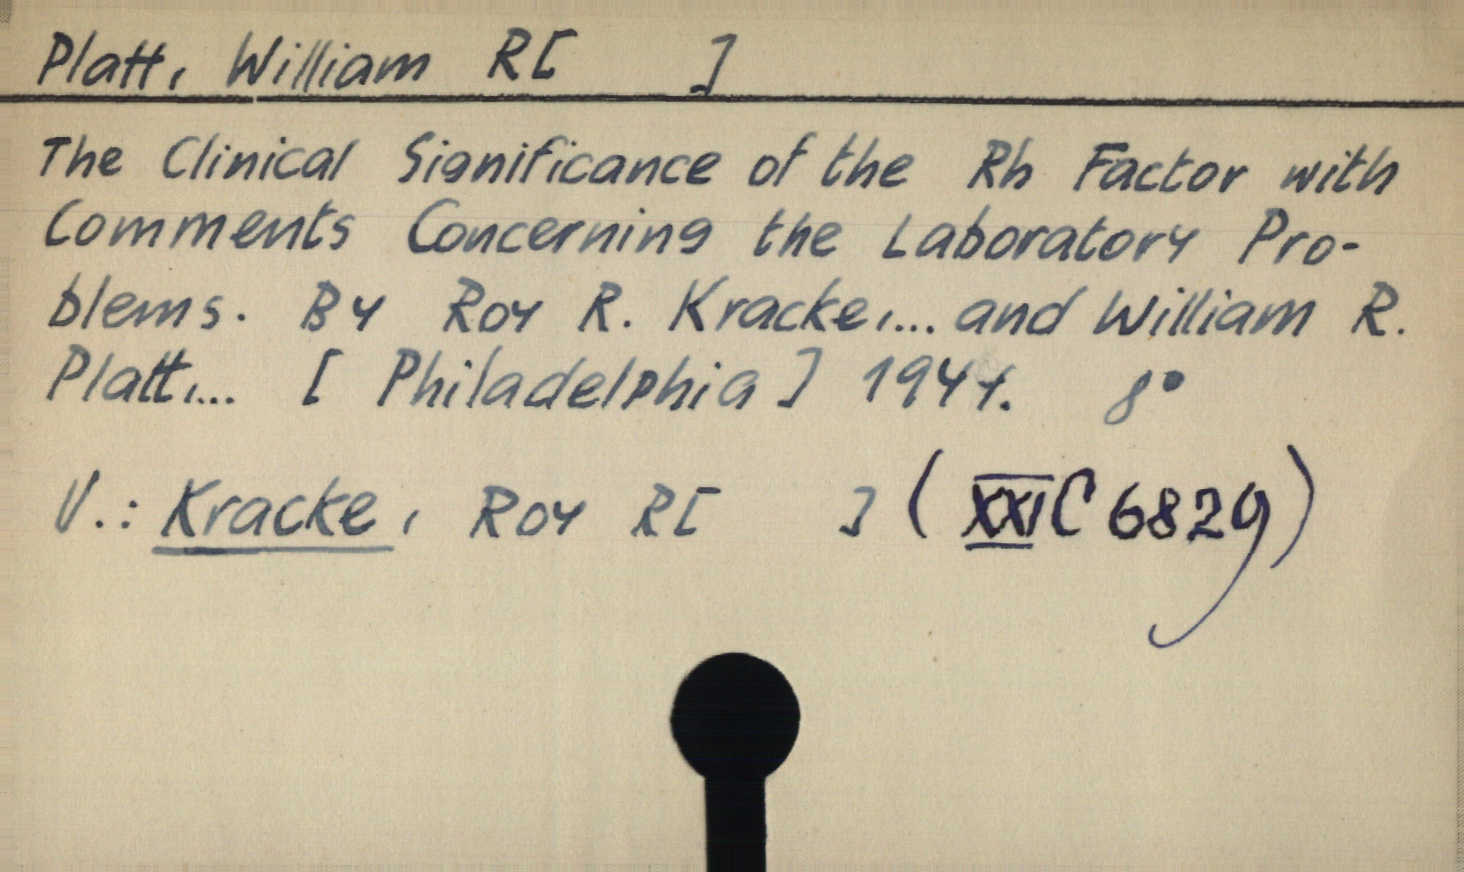 Platt, William R[ ]
The Clinical Significance of the Rh Factor with
Comments Concerning the Laboratory Pro-
blems. By Roy R. Kracke,... and William R.
Platt,... [Philadelphia] 1944. 8°
V.: Kracke, Roy R[ ] (XXI C 6829)